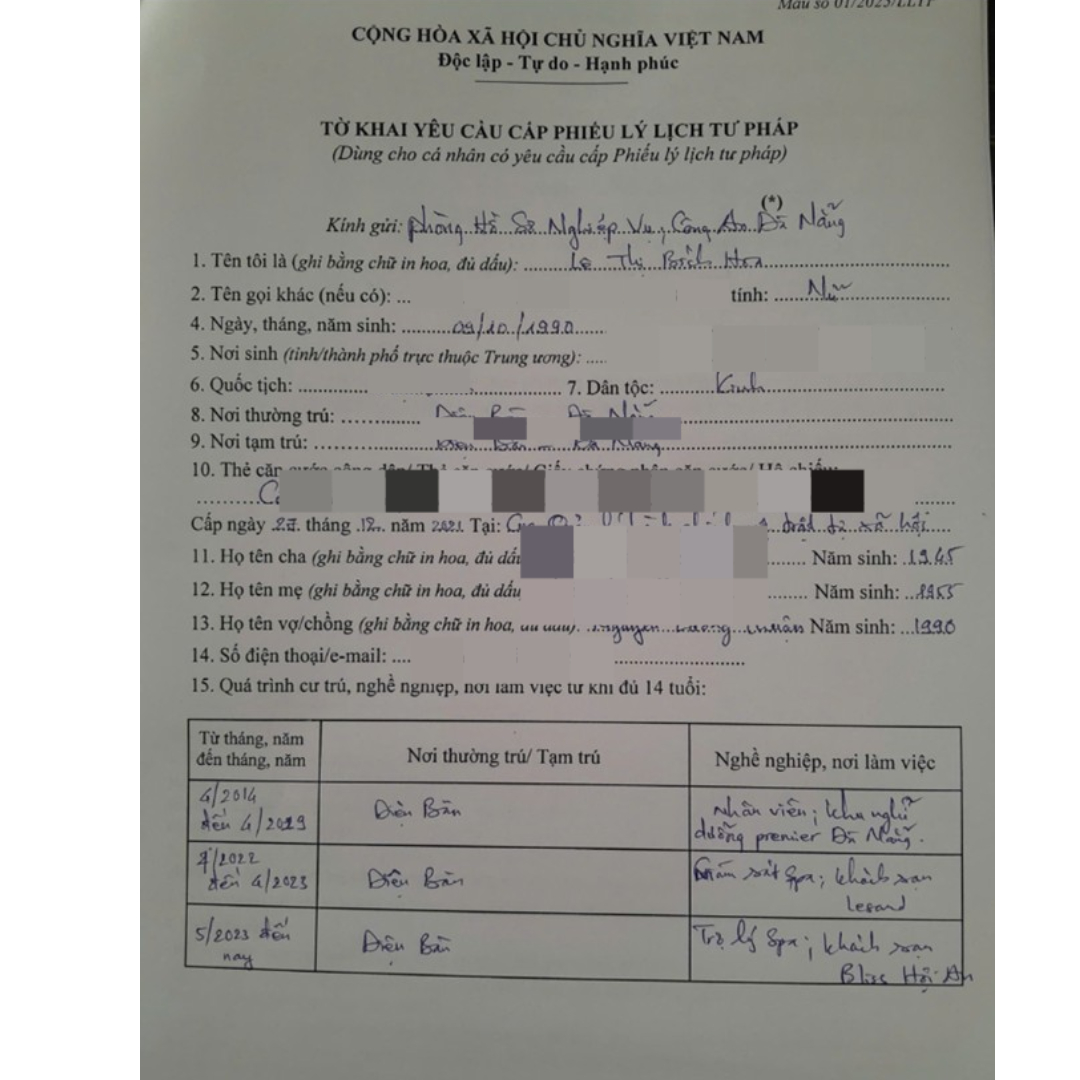 Mẫu số 01/2025/LLTP
CỘNG HÒA XÃ HỘI CHỦ NGHĨA VIỆT NAM
Độc lập - Tự do - Hạnh phúc
TỜ KHAI YÊU CẦU CẤP PHIẾU LÝ LỊCH TƯ PHÁP
(Dùng cho cá nhân có yêu cầu cấp Phiếu lý lịch tư pháp)
Kính gửi: Phòng Hồ Sơ Nghiệp Vụ, Công An Đà Nẵng (*)
1. Tên tôi là (ghi bằng chữ in hoa, đủ dấu): Lê Thị Bích Hoa
2. Tên gọi khác (nếu có): ... tính: Nữ
4. Ngày, tháng, năm sinh: 09/10/1990
5. Nơi sinh (tỉnh/thành phố trực thuộc Trung ương): ....
6. Quốc tịch: ............ 7. Dân tộc: Kinh
8. Nơi thường trú: Đà Nẵng
9. Nơi tạm trú:
10. Thẻ căn
Cấp ngày 27 tháng 12 năm 2021 Tại: trật tự xã hội
11. Họ tên cha (ghi bằng chữ in hoa, đủ dấu Năm sinh: 1945
12. Họ tên mẹ (ghi bằng chữ in hoa, đủ dấu Năm sinh: 1955
13. Họ tên vợ/chồng (ghi bằng chữ in hoa, Năm sinh: 1990
14. Số điện thoại/e-mail: ....
15. Quá trình cư trú, nghề nghiệp, nơi làm việc từ khi đủ 14 tuổi:
Từ tháng, năm
đến tháng, năm
Nơi thường trú/ Tạm trú
Nghề nghiệp, nơi làm việc
4/2014
đến 4/2019
Điện Bàn
Nhân viên; khu nghỉ
dưỡng premier Đà Nẵng.
7/2022
đến 4/2023
Điện Bàn
Giám sát Spa; khách sạn
Lesand
5/2023 đến
nay
Điện Bàn
Trợ lý Spa; khách sạn
Bliss Hội An